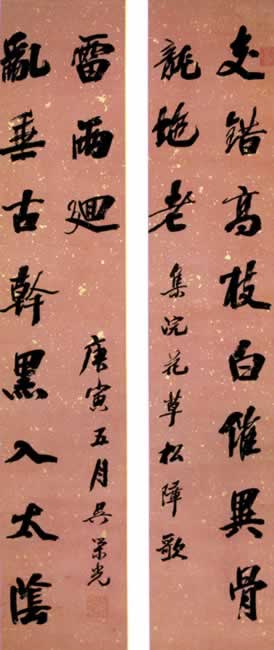 交錯高枝白催異骨
龍虵老
集浣花草松障歌
亂垂古幹黑入太陰
雷雨迴
庚寅五月吳榮光